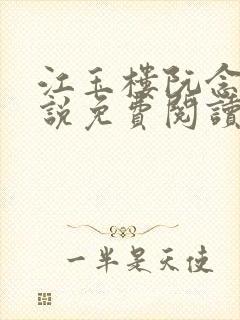 江玉樓阮念
說免費閱讀
一半是天使